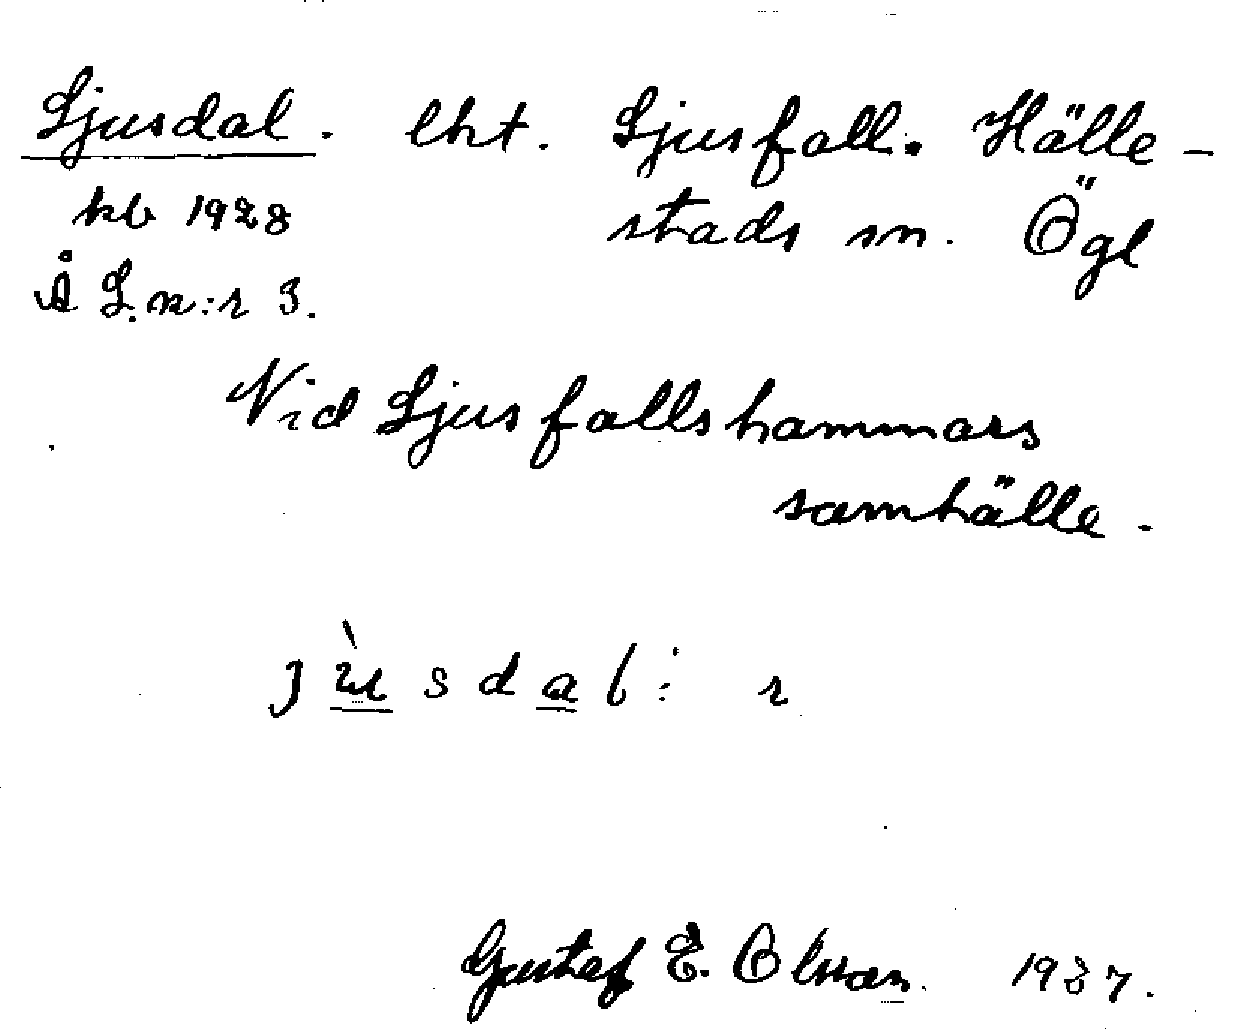 Ljusdal. lht. Ljusfall. Hälle-
kb 1928 stads sn. Ögl
Å L.n:r 3.
Vid Ljusfallshammars
samhälle.
jùsdal: r
Gustaf E. Olsson. 1937.